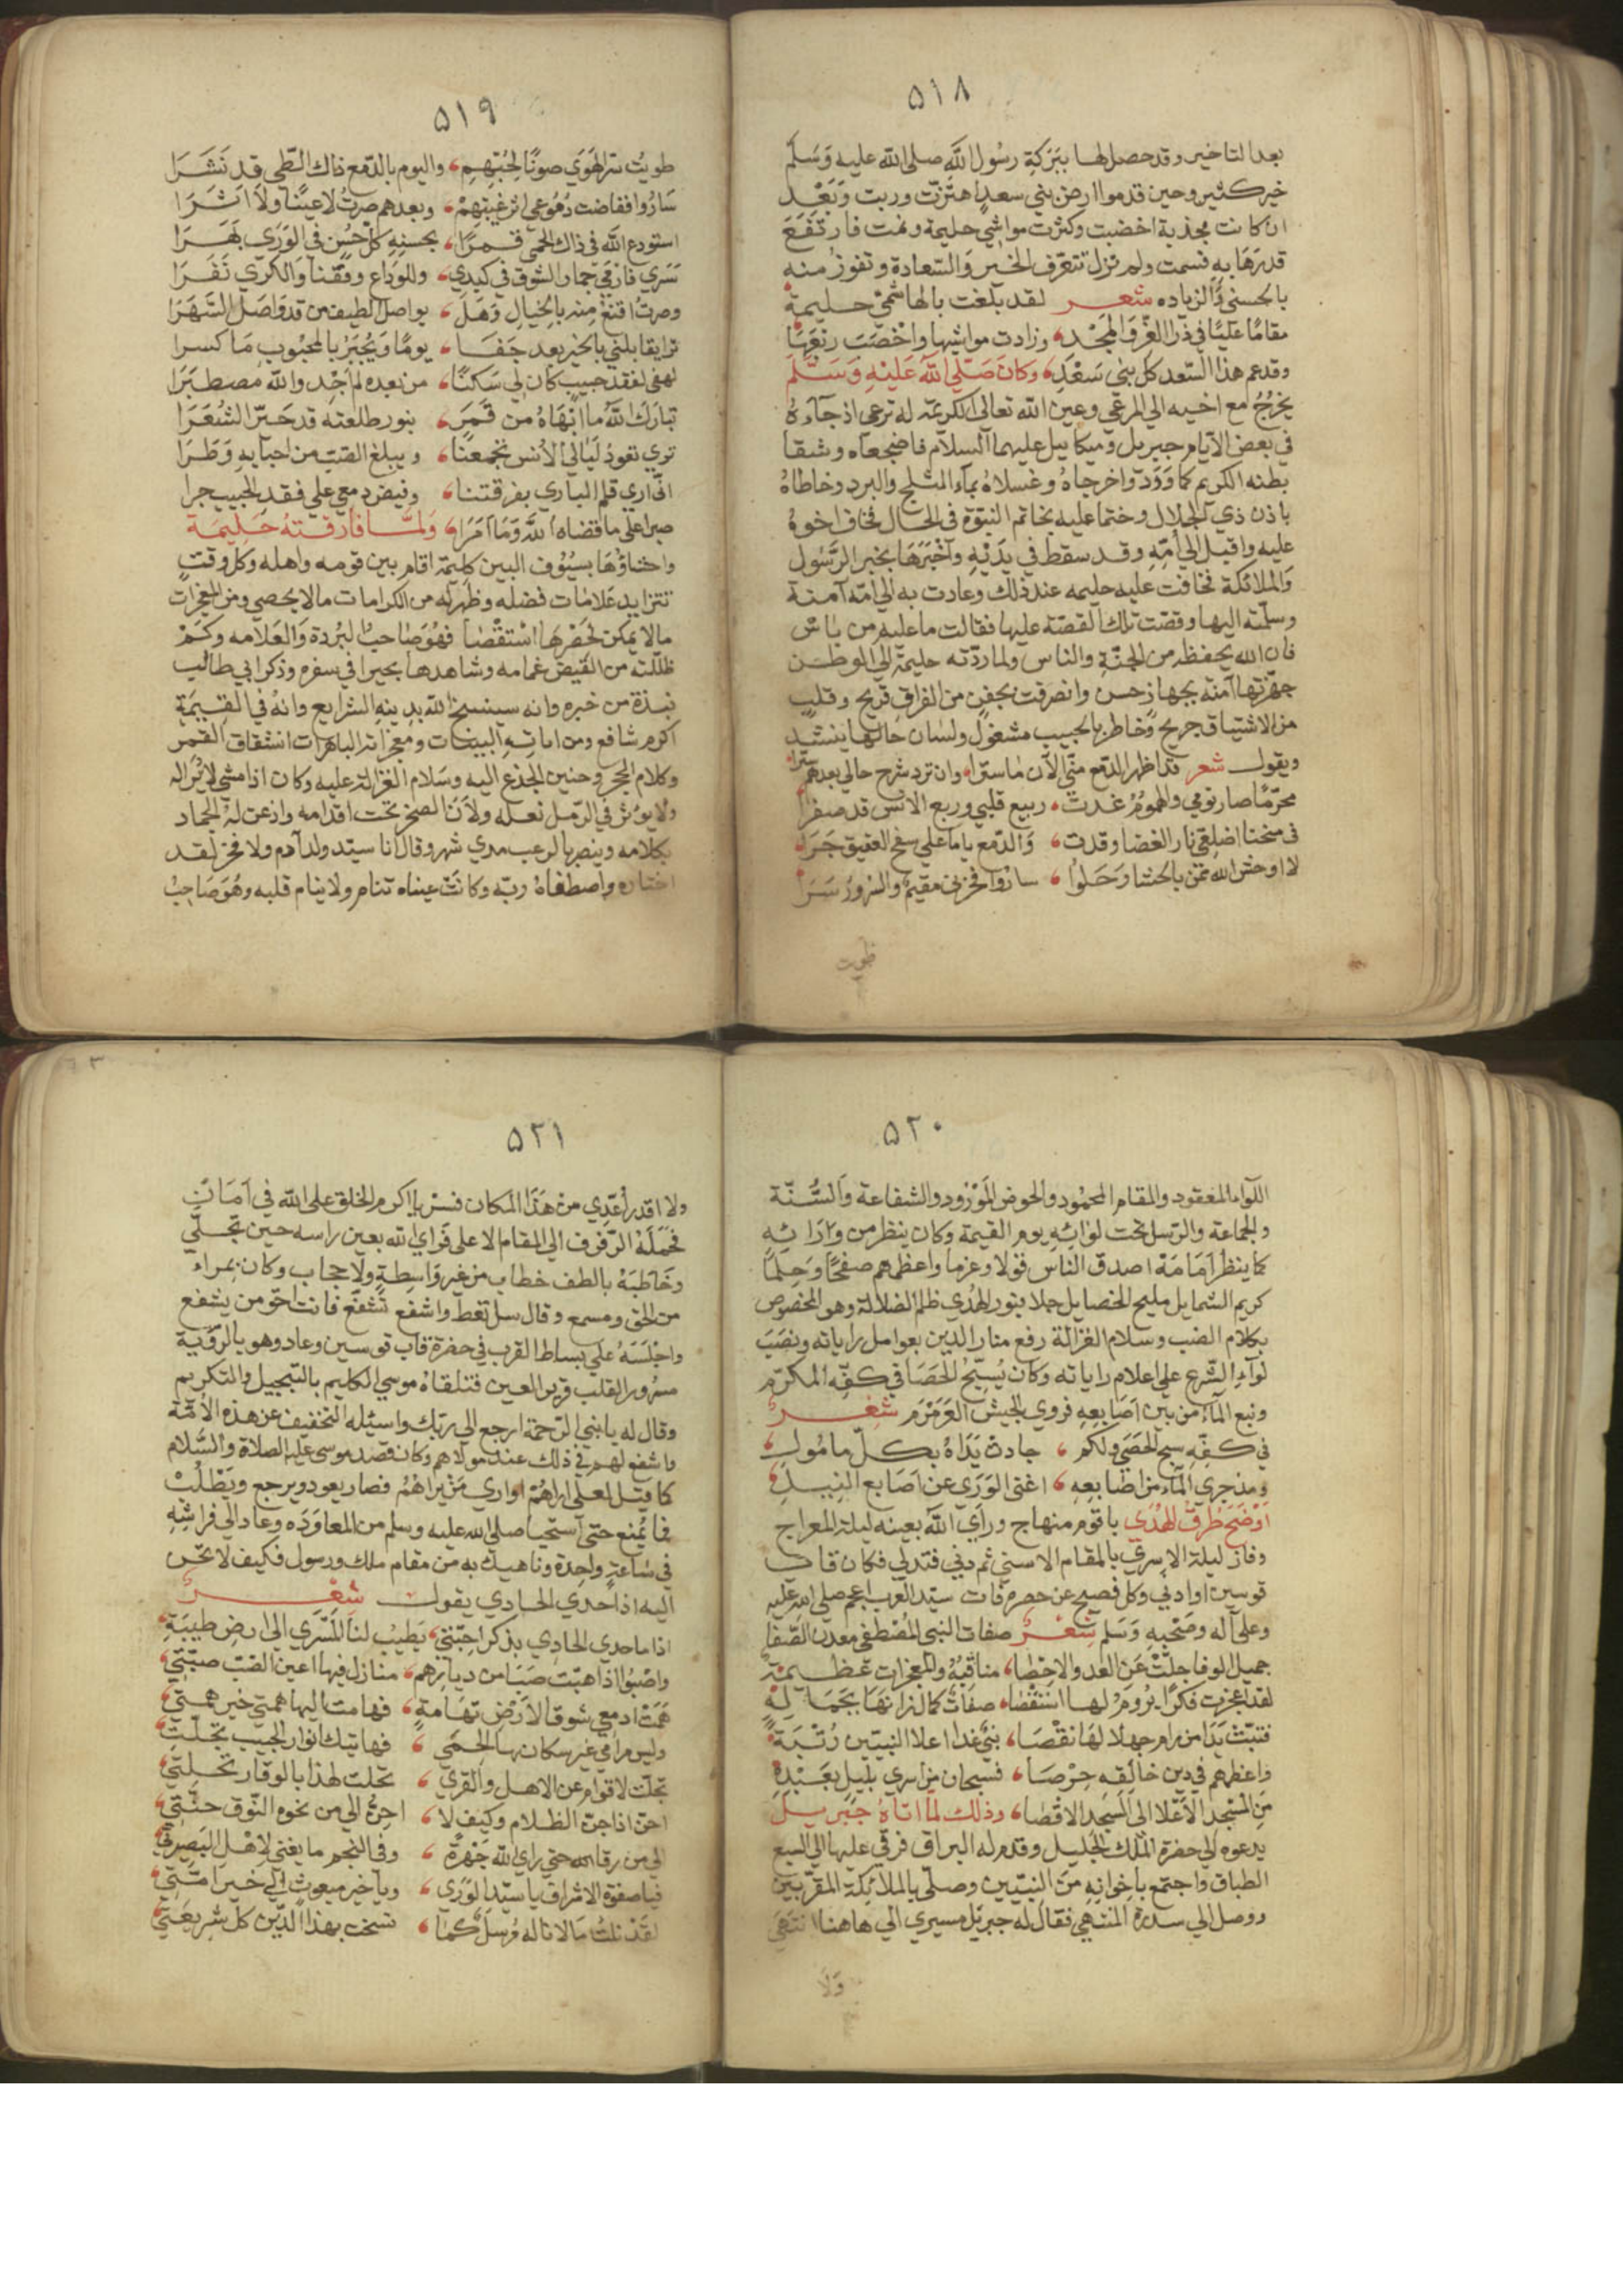 ٥١٨
بعد التاخير وقد حصل لها ببركة رسول الله صلى الله عليه وسلم
خير كثير وحين قدموا ارض بني سعد اهتزت وربت وبعد
ان كانت مجدبة اخضبت وكثرت مواشي حليمة ونمت فارتفع
قدرها به وسمت ولم تزل تتعرف الخير والسعادة وتفوز منه
بالحسنى والزياده شعر لقد بلغت بالهاشمي حليمة
مقاما عليا في ذرا العز والمجد وزادت مواشيها واخصب ربعها
وقد عم هذا السعد كل بني سعد وكان صلى الله عليه وسلم
يخرج مع اخيه الى المرعي وعين الله تعالى الكريمة له ترعى اذ جآءه
في بعض الايام جبريل وميكاييل عليهما السلام فاضجعاه وشقا
بطنه الكريم كما ورد واخرجاه وغسلاه بمآء الثلج والبرد وخاطاه
باذن ذي الجلال وختما عليه بخاتم النبوة في الحال فخاف اخوه
عليه واقبل الى امه وقد سقط في يديه وآخبرها بخبر الرسول
والملائكة فخافت عليه حليمه عند ذلك وعادت به الي امه آمنة
وسلمته اليها وقصت تلك القصة عليها فقالت ما عليه من باس
فان الله يحفظه من الجنة والناس ولما ردته حليمة الي الوطن
جهزتها آمنة بجهاز حسن وانصرفت بجفن من الفراق قريح وقلب
من الاشتياق جريح وخاطر بالحبيب مشغول ولسان حالها ينشد
ويقول شعر قد اظهر الدمع مني الآن ما سترا وان ترد شرح حالي بعدهم سترا
محرما صار نومي والهموم غدت ربيع قلبي وربع الانس قد صفرا
في منحنا اضلعي نار الغضا وقدت والدمع ياما علي سفح العقيق جرا
لا اوحش الله ممن بالحشا رحلوا ساروا فحزني مقيم والسرور سرا
طويت
٥١٩
طويت ستر الهوي صونا لحبهم واليوم بالدمع ذاك الطي قد نشرا
ساروا ففاضت دموعي اثر غيبتهم وبعدهم صرت لا عينا ولا اثرا
استودع الله في ذاك الحمى قمرا بحسنه كل حسن في الوري بهرا
سري فارمي جمار الشوق في كبدي وللوداع وقفنا والكري نفرا
وصرت اقنع منه بالخيال وهل يواصل الطيف من قد واصل السهرا
ترا يقابلني بالخير بعد جفا يوما ويجبر بالمحبوب ما كسرا
لهفي لفقد حبيب كان لي سكنا من بعده لم اجد والله مصطبرا
تبارك الله ما ابهاه من قمر بنور طلعته قد حير الشعرا
تري تعود ليالي الانس تجمعنا ويبلغ الصب من احبابه وطرا
اني اري قلم الباري بفرقتنا وفيض دمعي علي فقد الحبيب جرا
صبرا على ما قضاه الله وما امرا ولما فارقته حليمة
واحشاؤها بسيوف البين كليمة اقام بين قومه واهله وكل وقت
تتزايد علامات فضله وظهر له من الكرامات مالا يحصي ومن المعجزات
مالا يمكن لحصرها استقصا فهو صاحب البردة والعلامه وكم
ظللته من القيض غمامه وشاهدها بحيرا في سفره وذكر ابي طالب
نبذة من خبره وانه سينسخ الله بدينه الشرايع وانه في القيمة
اكرم شافع ومن اياته البينات ومعجزاته الباهرات انشقاق القمر
وكلام الحجر وحنين الجذع اليه وسلام الغزالة عليه وكان اذا مشي لا يري له
ولا يوثر في الرمل نعله ولان الصخر تحت اقدامه واذعن له الجماد
بكلامه وينصر بالرعب مدي شهر وقال انا سيد ولد آدم ولا فخر لقد
اختاره واصطفاه ربه وكانت عيناه تنام ولا ينام قلبه وهو صاحب
٥٢٠
اللوآء المعقود والمقام المحمود والحوض المورود والشفاعة والسنة
والجماعة والرسل تحت لوائه يوم القيمة وكان ينظر من ورائه
كما ينظر امامه اصدق الناس قولا وعزما واعظمهم صفحا وحلما
كريم الشمايل مليح الخصايل جلا بنور الهدي ظلم الضلالة وهو المخصوص
بكلام الضب وسلام الغزالة رفع منار الدين بعوامل راياته ونصب
لوآء الشرع على اعلام راياته وكان يسبح الحصا في كفه المكرم
ونبع المآء من بين اصابعه فروي الجيش العرمرم شعر
في كفه سبح الحصي ولكم جادت يداه بكل مامول
ومذ جري المآء من اصابعه اغنى الوري عن اصابع النيل
اوضح طرق الهدى باقوم منهاج وراي الله بعينه ليلة المعراج
وفاز ليلة الاسري بالمقام الاسنى ثم دنى فتدلى فكان قاب
قوسين او ادنى وكل فصيح عن حصره فات سيد العرب والعجم صلى الله عليه
وعلى آله وصحبه وسلم شعر صفات النبي المصطفى معدن الصفا
جميل الوفا جلت عن العد والاحصا مناقبه والمعجزات عظيمة
لقد اعجزت فكرا يروم لها استقصا صفات كمال زانها بجماله
فتبت يدا من رام جهلا لها نقصا نبي غدا اعلا النبيين رتبة
واعظمهم في دين خالقه حرصا فسبحان من اسري بليل بعبده
من المسجد الاعلا الى المسجد الاقصا وذلك لما اتاه جبريل
يدعوه الى حضرة الملك الجليل وقدم له البراق فرقي عليها الي السبع
الطباق واجتمع باخوانه من النبيين وصلى بالملائكة المقربين
ووصل الي سدرة المنتهي فقال له جبريل مسيري الي هاهنا انتهي
ولا
٥٢١
ولا اقدر اعدي من هذا المكان فسر يا اكرم الخلق على الله في امان
فحمله الرفرف الي المقام الاعلى فراي الله بعين راسه حين تجلي
وخاطبه بالطف خطاب من غير واسطة ولا حجاب وكان بمراء
من الحق ومسمع وقال سل تعط واشفع تشفع فانت احق من يشفع
واجلسه علي بساط القرب في حضرة قاب قوسين وعاد وهو بالروية
مسرور القلب قرير العين فتلقاه موسي الكليم بالتبجيل والتكريم
وقال له يا نبي الرحمة ارجع الى ربك واسئله التخفيف عن هذه الامة
واشفع لهم في ذلك عند مولاهم وكان قصد موسى عليه الصلاة والسلام
كما قيل لعلي اراهم او اري من يراهم فصار يعود ويرجع ويطلب
فما يمنع حتى استحيا صلى الله عليه وسلم من المعاوده وعاد الى فراشه
في ساعة واحدة وناهيك به من مقام ملك ورسول فكيف لا نحن
اليه اذا حدي الحادي يقول شعر
اذا ما حدي الحادي بذكر احبتي يطيب لنا المسري الى ارض طيبة
واصبوا اذا هبت صبا من ديارهم منازل فيها اعين الصب صبت
همت ادمعي شوقا لارض تهامة فهامت اليها همتي خير همتي
وليس مرامي غير سكان بها الحمي فهاتيك انوار الحبيب تجلت
تجلت لاقوام عن الاهل والقري تخلت لهذا بالوقار تحلت
احن اذا جن الظلام وكيف لا احن الي من نحوه النوق حنت
الي من رقا حتى راي الله جهرة وفي النجم ما يغني لاهل البصيرة
فيا صفوة الاشراق يا سيد الوري ويا خير مبعوث الي خير امة
لقد نلت مالا ناله مرسل كما نسخت بهذا الدين كل شريعة